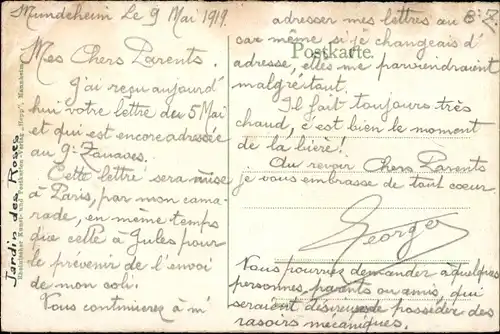 Mundenheim Le 9 Mai 1919.
Mes Chers Parents.
J'ai reçu aujourd'
hui votre lettre du 5 Mai
et qui est encore adressée
au 9e Zouaves.
Cette lettre sera mise
à Paris, par mon cama-
rade, en même temps
que celle à Jules pour
le prévenir de l'envoi
de mon coli.
Vous continuerez à m'
adresser mes lettres au
car même si je changeais d'
adresse, elles me parviendraient
malgré tout.
Il fait toujours très
chaud, c'est bien le moment
de la bière!
Au revoir Chers Parents
je vous embrasse de tout coeur
Georges
Vous pourriez demander à quelques
personnes, parents ou amis, qui
seraient désireuses de posséder des
rasoirs mécaniques.
Postkarte
Jardin des Roses
Rheinischer Kunst- und Postkarten-Verlag "Hepp", Mannheim